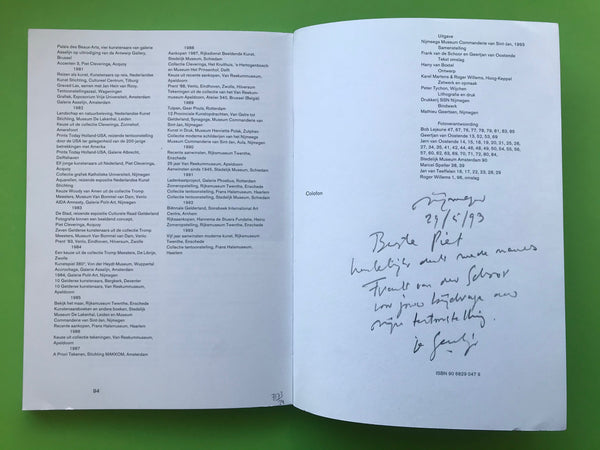 Paleis des Beaux-Arts, vier kunstenaars van galerie
Asselijn op uitnodiging van de Antwerp Gallery,
Brussel
Accenten 3, Piet Cleveringa, Acquoy
1981
Reizen als kunst, Kunstenaars op reis, Nederlandse
Kunst Stichting, Cultureel Centrum, Tilburg
Gravistii Lax, samen met Jan Hein van Rooy,
Tentoonstellingszaal, Wageningen
Grafiek, Exposorium Vrije Universiteit, Amsterdam
Galerie Asselijn, Amsterdam
1982
Landschap en natuurbeleving, Nederlandse Kunst
Stichting, Museum De Lakenhal, Leiden
Keuze uit collectie Cleveringa, Zonnehof,
Amersfoort
Prints Today Holland-USA, reizende tentoonstelling
door de USA ter gelegenheid van de 200 jarige
betrekkingen met Amerika
Prints Today Holland-USA, Galerie Albrecht,
Delfshaven
Elf jonge kunstenaars uit Nederland, Piet Cleveringa,
Acquoy
Collectie grafiek Katholieke Universiteit, Nijmegen
Aquarellen, reizende expositie Nederlandse Kunst
Stichting
Keuze Woody van Amen uit de collectie Tromp
Meesters, Museum Van Bommel van Dam, Venlo
AIDA Amnesty, Galerie Polit-Art, Nijmegen
1983
De Stad, reizende expositie Culturele Raad Gelderland
Fotografie binnen een beeldend concept,
Piet Cleveringa, Acquoy
Zeven Gelderse kunstenaars uit de collectie Tromp
Meesters, Museum Van Bommel van Dam, Venlo
Prent '83, Venlo, Eindhoven, Hilversum, Zwolle
1984
Een keuze uit de collectie Tromp Meesters, De Librije,
Zwolle
Kunstspiel 360°, Von der Heydt-Museum, Wuppertal
Accrochage, Galerie Asselijn, Amsterdam
1984, Galerie Polit-Art, Nijmegen
10 Gelderse kunstenaars, Bergkerk, Deventer
10 Gelderse kunstenaars, Van Reekummuseum,
Apeldoorn
1985
Bekijk het maar, Rijksmuseum Twenthe, Enschede
Kunstenaarsboeken en andere boeken, Stedelijk
Museum De Lakenhal, Leiden en Museum
Commanderie van Sint-Jan, Nijmegen
Recente aankopen, Frans Halsmuseum, Haarlem
1986
Keuze uit collectie tekeningen, Van Reekummuseum,
Apeldoorn
1987
A Priori Tekenen, Stichting MAKKOM, Amsterdam
1988
Aankopen 1987, Rijksdienst Beeldende Kunst,
Stedelijk Museum, Schiedam
Collectie Cleveringa, Het Kruithuis, 's Hertogenbosch
en Museum Het Prinsenhof, Delft
Keuze uit recente aankopen, Van Reekummuseum,
Apeldoorn
Prent '88, Venlo, Eindhoven, Zwolle, Hilversum
Tekeningen uit de collectie van het Van Reekum-
museum, Apeldoorn
Galerie d'Art 80, Brussel (België)
1989
Zuipen, Gear Pools, Rotterdam
12 Provinciale Kunstopdrachten, Van Gelre tot
Gelderland, Synagoge, Museum Commanderie van
Sint-Jan, Nijmegen
Kunst in Druk, Museum Henriette Polak, Zutphen
Collectie moderne schilderijen van het Nijmeegs
Museum Commanderie van Sint-Jan, Aula, Nijmegen
1990
Recente aanwinsten, Rijksmuseum Twenthe,
Enschede
25 jaar Van Reekummuseum, Apeldoorn
Aanwinsten sinds 1945, Stedelijk Museum, Schiedam
1991
Ladenkastproject, Galerie Phoebus, Rotterdam
Zomeropstelling, Rijksmuseum Twenthe, Enschede
Collectie tentoonstelling, Stedelijk Museum,
Schiedam
1992
Biënnale Gelderland, Sonsbeek International Art
Centre, Arnhem
Keuze aankopen, Hannema de Stuers Fundatie, Heino
Zomeropstelling, Rijksmuseum Twenthe, Enschede
1993
Vijf jaar aanwinsten moderne kunst, Rijksmuseum
Twenthe, Enschede
Collectie tentoonstelling, Frans Halsmuseum,
Haarlem
94
Uitgave
Nijmeegs Museum Commanderie van Sint-Jan, 1993
Samenstelling
Frank van de Schoor en Geertjan van Oostende
Tekst omslag
Harry van Boxtel
Ontwerp
Karel Martens & Roger Willems, Hoog-Keppel
Zetwerk en opmaak
Peter Tychon, Wijchen
Lithografie en druk
Drukkerij SSN Nijmegen
Bindwerk
Mathieu Geertsen, Nijmegen
Fotoverantwoording
Bob Lejeune 47, 67, 76, 77, 78, 79, 81, 83, 85
Geertjan van Oostende 13, 53, 63, 69
Stedelijk Museum Amsterdam 90
Marcel Speller 26, 39
Jan van Teeffelen 16, 17, 22, 33, 28, 29
Roger Willems 1, 96, omslag
Colofon
Nijmegen
Beste Piet
hartelijk dank mede namens
Frank van der Schoor
voor jouw bijdrage aan
mijn tentoonstelling.
ISBN 90 6829 047 6